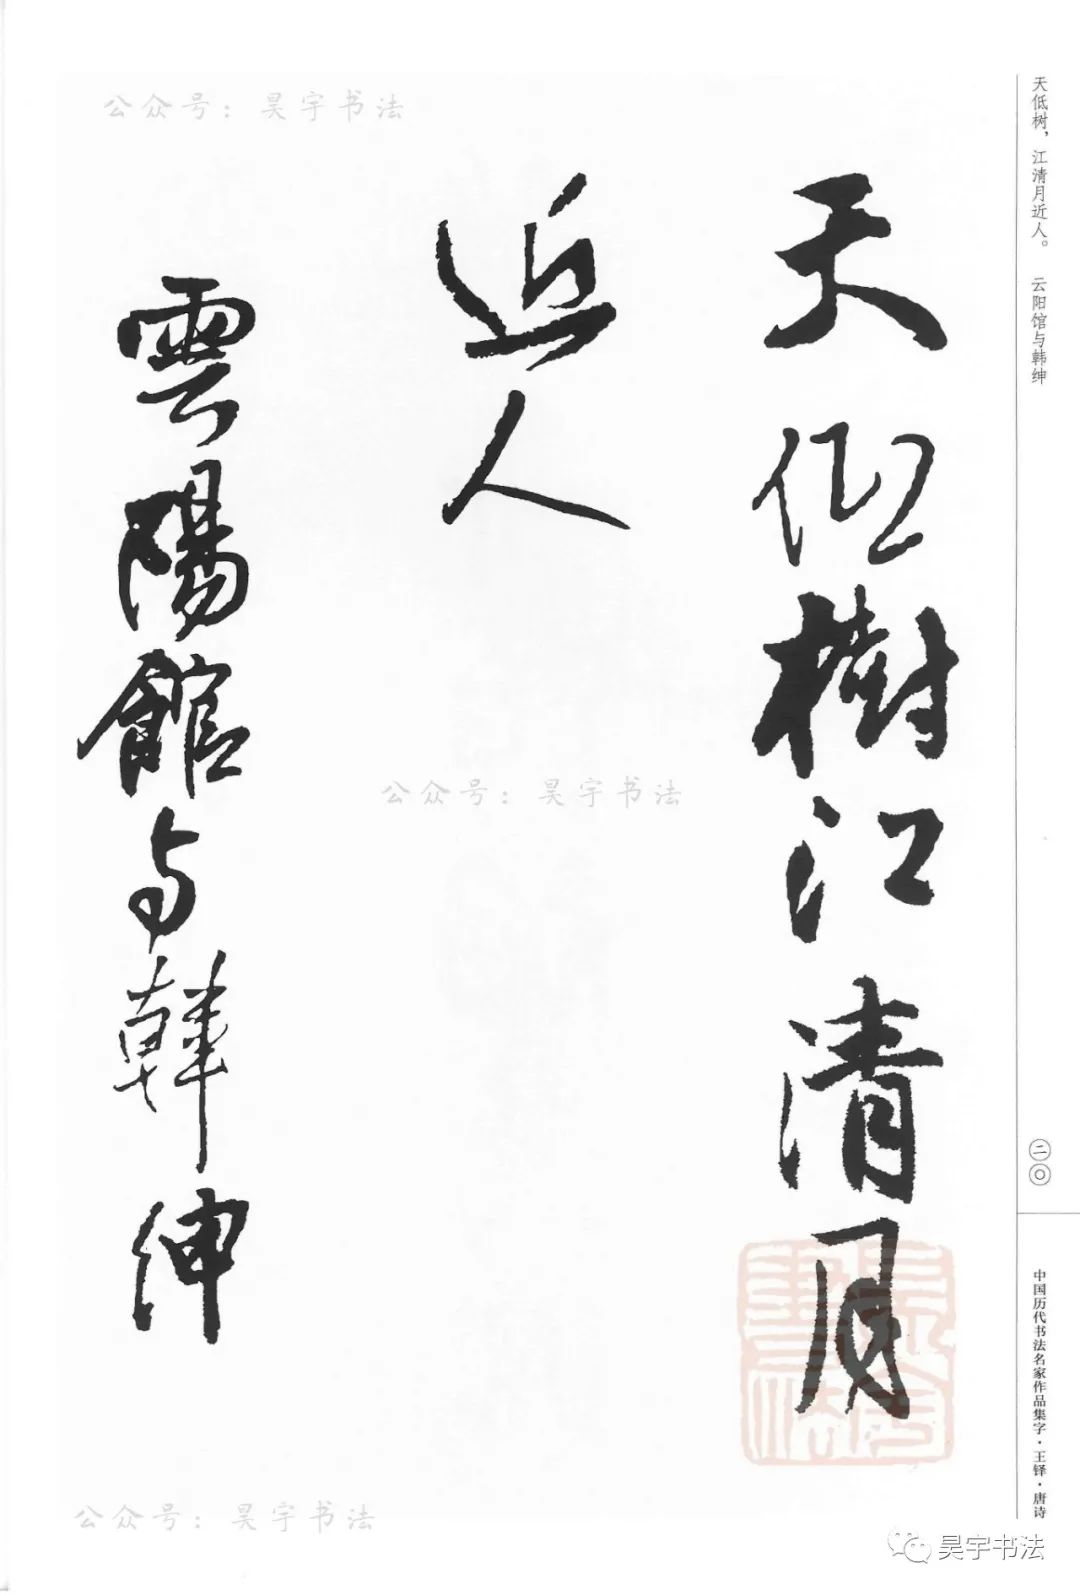 公众号：昊宇书法
天低樹江清月
近人
雲陽館与韓紳
天低树，江清月近人。 云阳馆与韩绅
二〇
中国历代书法名家作品集字·王铎·唐诗
公众号：昊宇书法
公众号：昊宇书法
昊宇书法